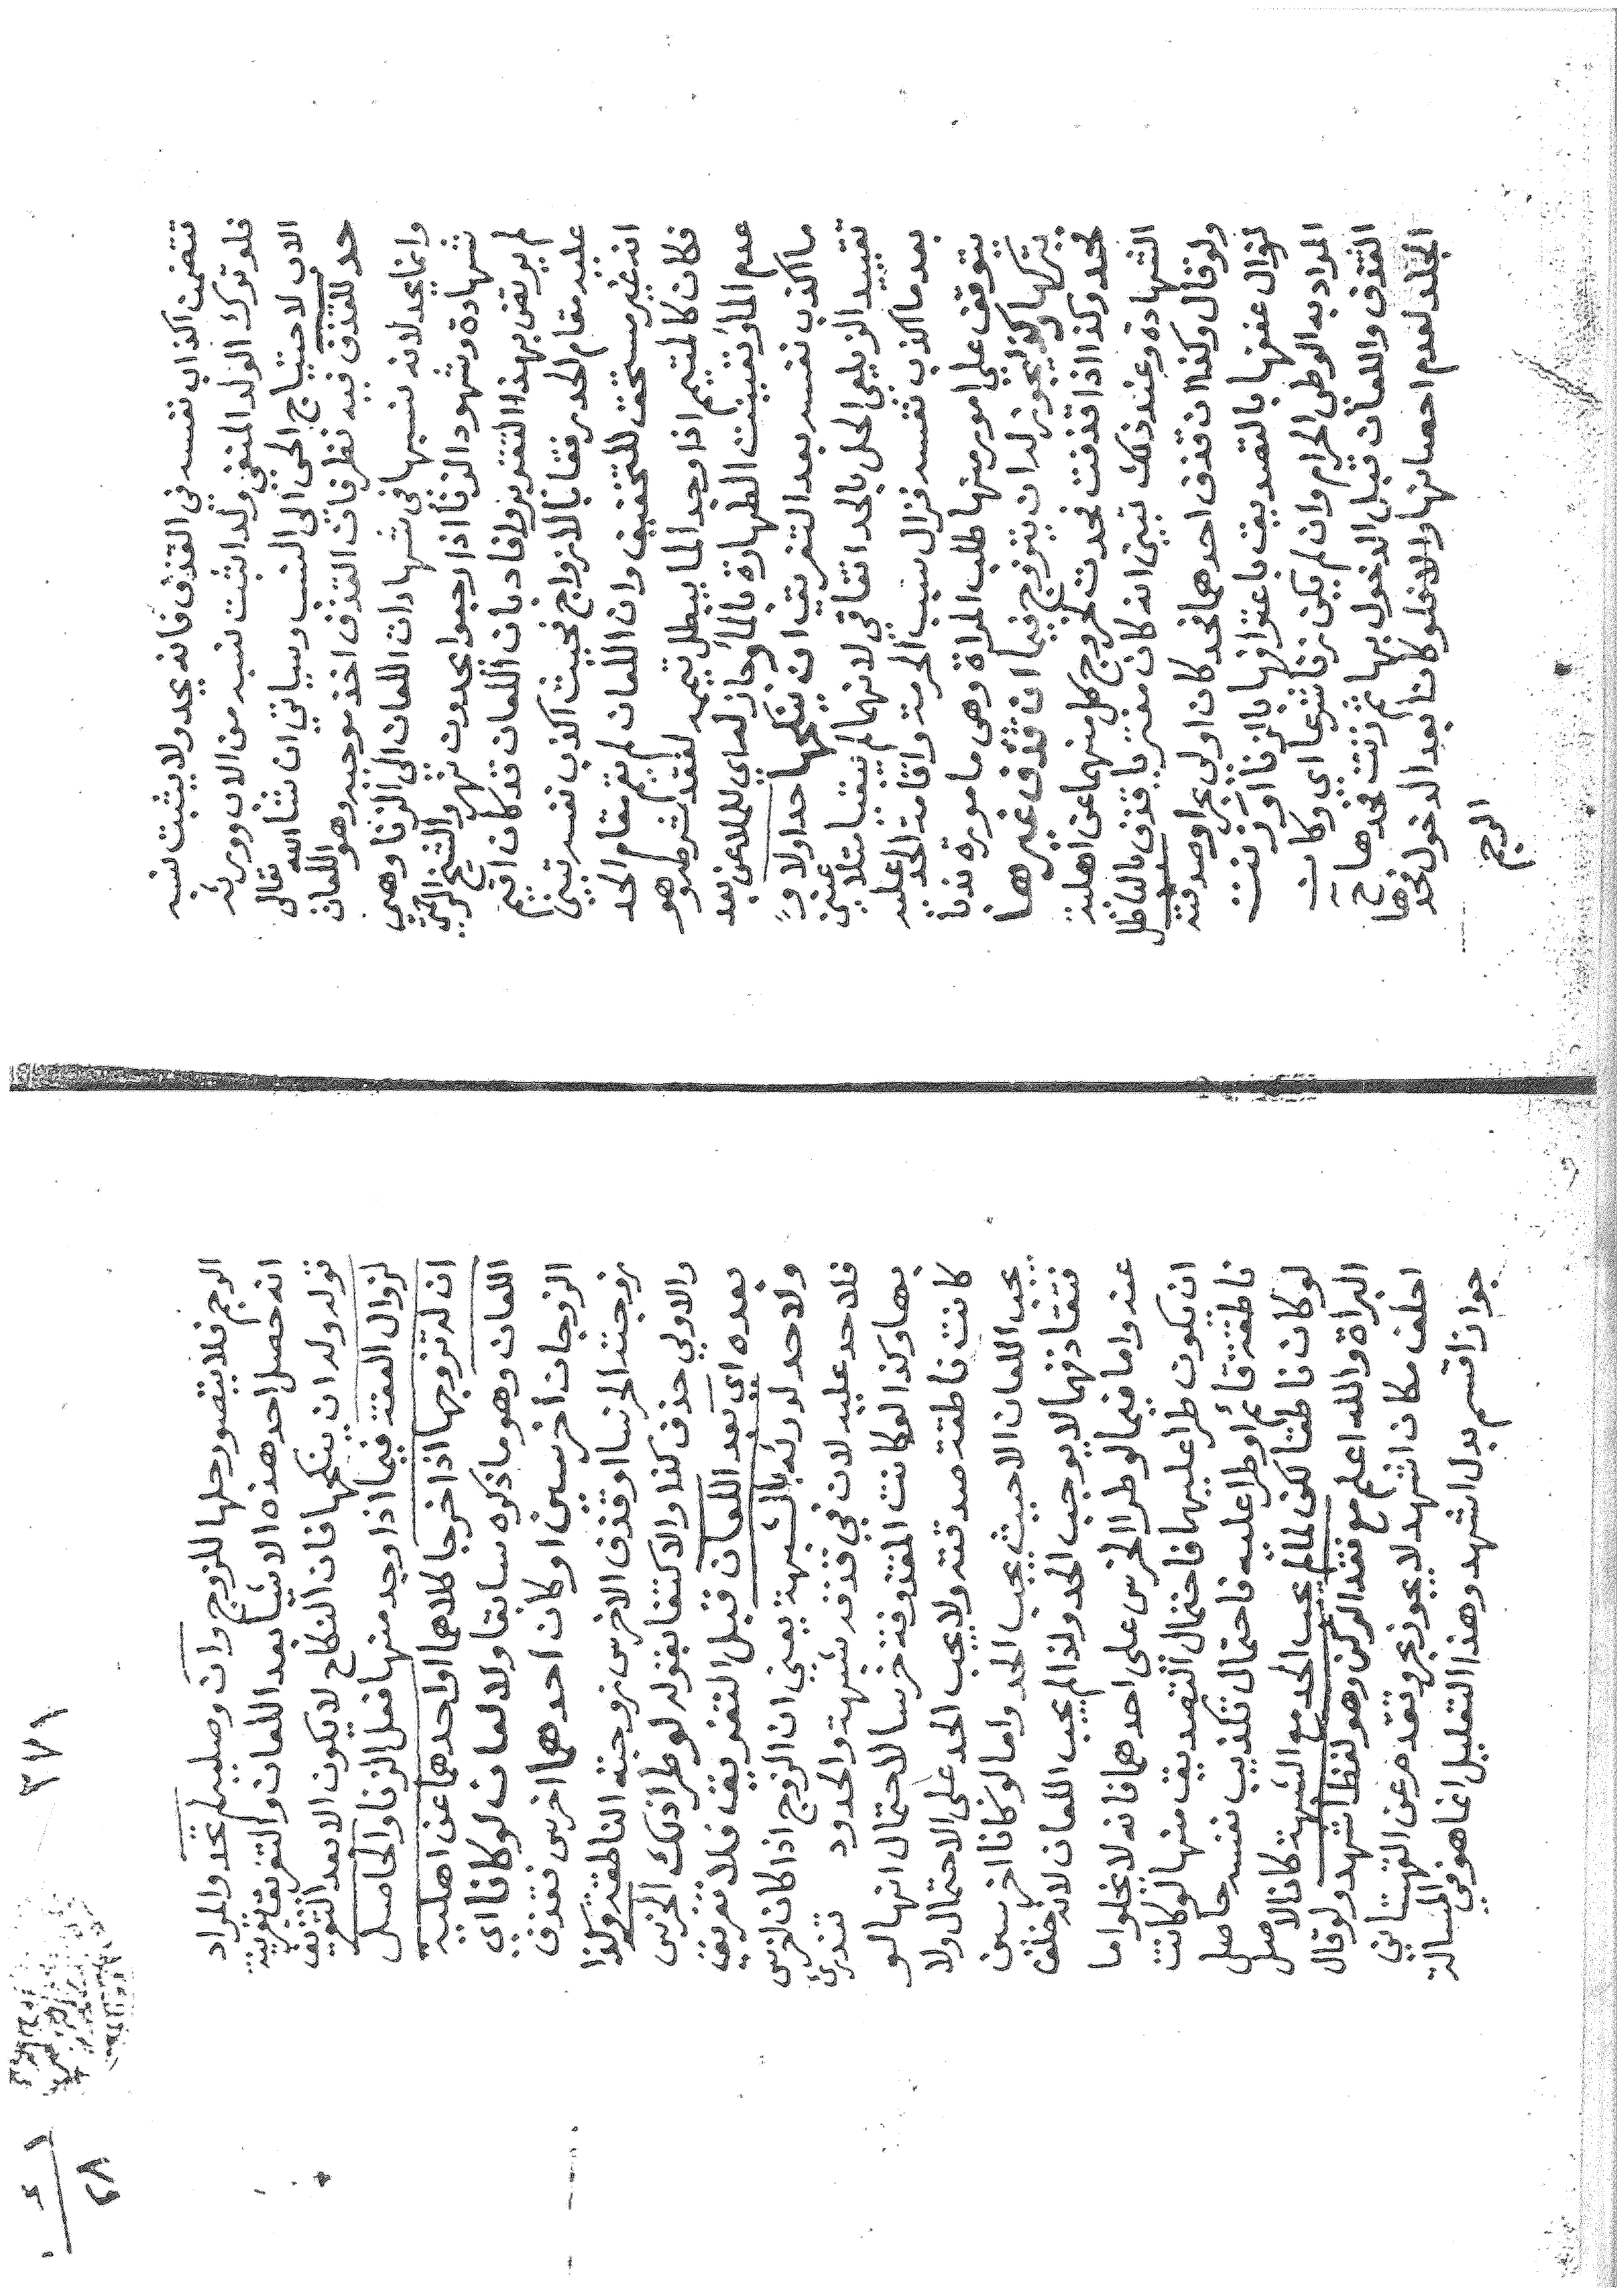 تتضمن اكذاب نفسه في القذف فانه يحد ولا يثبت نسبه
فلو ترك الولد المنفي ولدا ثبت نسبه من الاب وورثه
الاب لاحتياج الحي الى النسب وسياتي ان شا الله تعالى
حد للقذف فيه نظر فان القذف اخذ موجبه وهو اللعان
وانما يحد لانه نسبها في شهادات اللعان الى الزنا وهي
شهادة وشهود الزنا اذا رجعوا يحدون
لم يرتض بهذا التقرير وافاد بان اللعان قد كان اقيم
عليه مقام الحد رفقا بالازواج فحيث اكذب نفسه تبين
انه غير مستحق للتخفيف وان اللعان لم يقم مقام الحد
فكان كالمتيمم اذا وجد الما يبطل تيممه لفقد شرطه وهو
عدم الما وتعينت الطهارة بالما وجاز له اي للملاعن بعد
ما اكذب نفسه بعد التفريق ان ينكحها حد اولا و
تقييد الزيلعي الحل بالحد اتفاقي لانهما لم يبقيا متلاعنين
بعد ما اكذب نفسه فزال سبب الحرمة واقامة الحد عليه
يتوقف على امور منها طلب المراة وهي مامورة ندبا
بتركها وكذا يجوز له ان يتزوج فيما ان قذف غيرها
فحد وكذا اذا قذفت فحدت لخروج كل منهما عن اهلية
الشهادة وعند ذلك تبين انه كان مفتريا قذف بالفاظ
ولو قال وكذا ان قذف احدهما فحد كان اولى بحر او صدقته
لزوال عفتها بالتصديق باعترافها بالزنا او زنت
المراد به الوطي الحرام وان لم يكن زنا شرعا اي وكان
القذف واللعان قبل الدخول بها ثم زنت فحدها ح
الجلد لعدم احصانها والا فلو كانا بعد الدخول فحدها
الرجم
٣٧٩
الرجم فلا يتصور حلها للزوج وان وصليه لم تحد والمراد
انه حصل احد هذه الاشيا بعد اللعان والتفريق بقرينة
قوله وله ان ينكحها فان النكاح لا يكون الا بعد التفريق
لزوال العفة فيما اذا وجد منها فعل الزنا والحاصل
ان له تزوجها اذا خرجا كلاهما او احدهما عن اهلية
اللعان وهو ما ذكره سابقا ولا لعان لو كانا اي
الزوجان اخرسين او كان احدهما اخرس فقذف
زوجته الخرسا او قذف الاخرس زوجته الناطقة وكذا
والاولى حذف كذا والاكتفا بقوله لو طرا ذلك الخرس
بعده اي بعد اللعان قبل التفريق فلا تفريق
ولا حد لدرئه بالشبهة يعني ان الزوج اذا كان اخرس
فلا حد عليه لان في قذفه شبهة والحدود تندرئ
بها وكذا لو كانت المقذوفة خرسا لاحتمال انها لو
كانت ناطقة صدقته ولا يجب الحد على الاحتمال ولا
يجب اللعان الا حيث يجب الحد واما لو كانا اخرسين
فتقاذفهما لا يوجب الحد ولذا لم يجب اللعان لانه خلف
عنه واما فيما لو طرا الخرس على احدهما فانه لا يخلو اما
ان يكون طرا عليها فاحتمال التصديق منها لو كانت
ناطقة قائم او طرا عليه فاحتمال تكذيب نفسه حاصل
لو كان ناطقا لكن لما لم يجب الحد مع الشبهة كانا الاصل
البراة والله اعلم مع فقد الركن وهو لفظ اشهد ولو قال
احلف مكان اشهد لا يجوز بحر وتقدم عن القهستاني
جواز اقسم بدل اشهد وهذا التعليل انما هو في المسالة